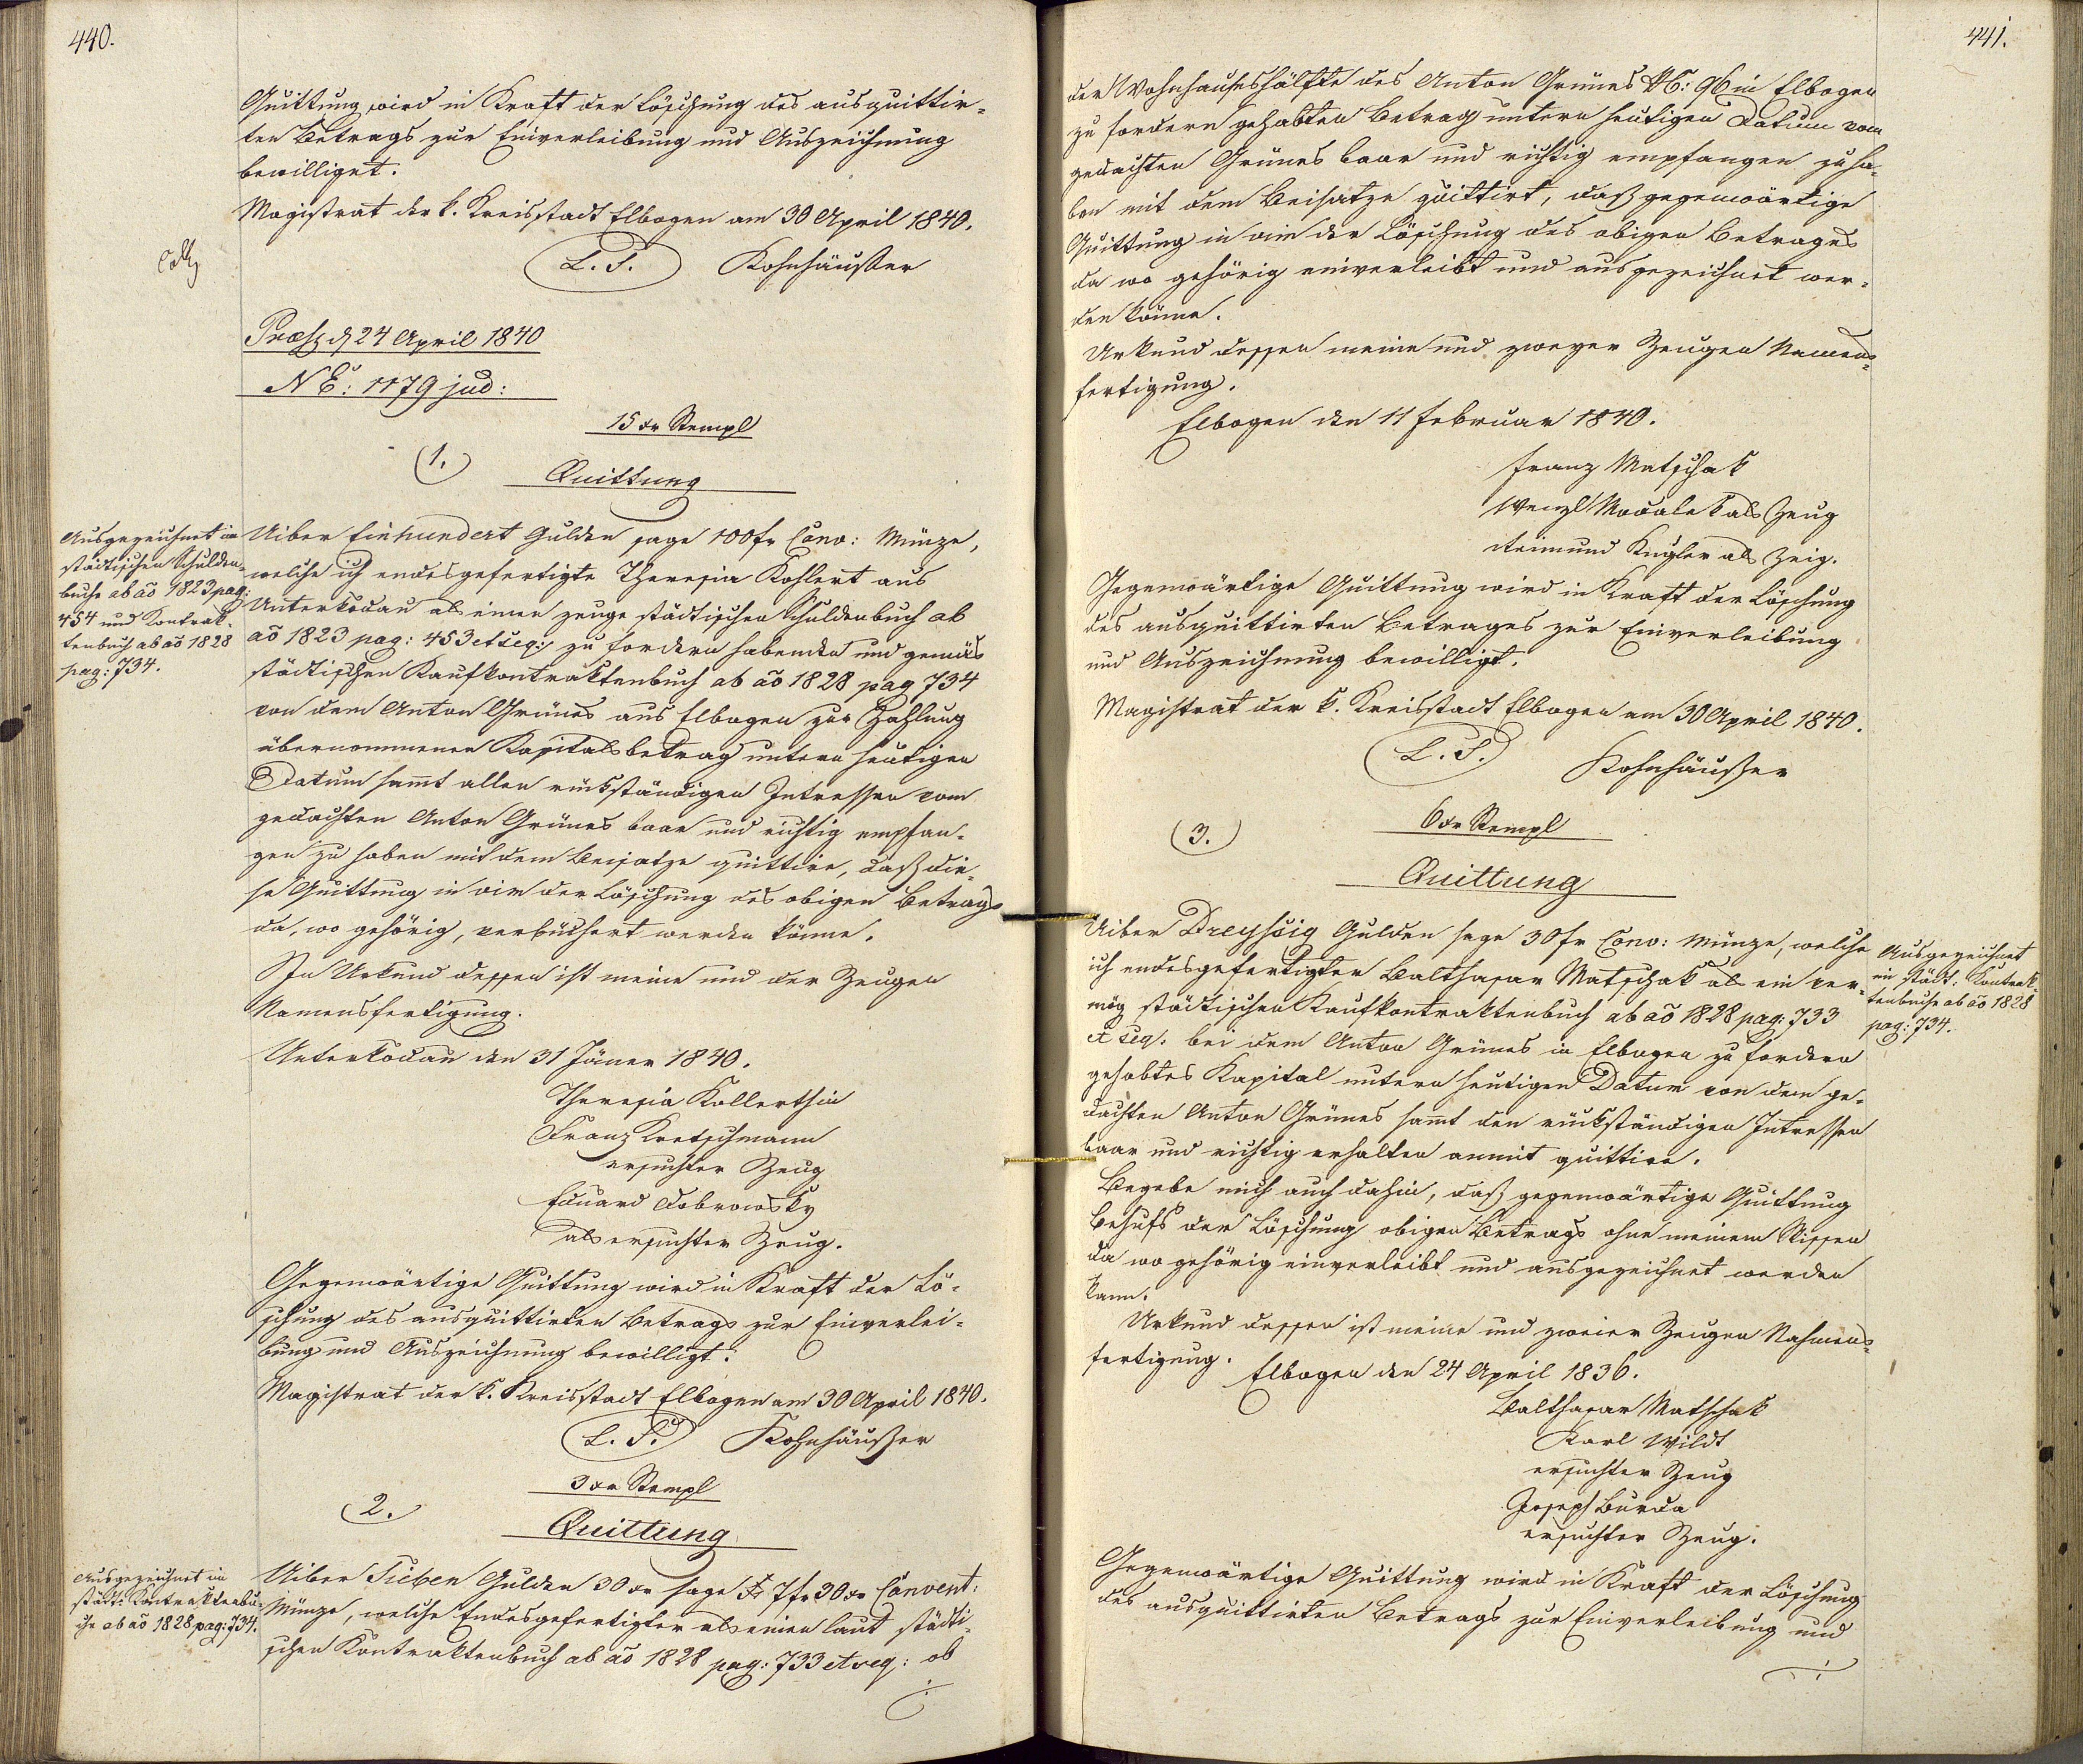 440.
Quittung wird in Kraft der Löschung des ausquittir-
ten Betrags zur Einverleibung und Auszeichnung
bewilliget.
Magistrat der k. Kreisstadt Elbogen am 30 April 1840.
L. S. Kohnhäußer
Præs d 24 April 1840
N E: 1179 jud:
15 xr Stempl
(1.)
Quittung
Ausgezeichnet im
städtischen Schulden-
buche ab aõ 1823 pag:
454 und Kontrak-
tenbuch ab aõ 1828
pag: 734.
Uiber Einhundert Gulden sage 100 fr Conv: Münze,
welche ich endesgefertigte Theresia Kohlert aus
Unterkodau als einen zeuge städtischen Schuldenbuch ab
aõ 1823 pag: 453 et seq: zu fordern habenden und gemäs
städtischen Kaufkontraktenbuch ab aõ 1828 pag 734
von dem Anton Grünes aus Elbogen zur Zahlung
übernommenen Kapitalsbetrag untern heutigen
Datum samt allen rückständigen Intressen vom
gedachten Anton Grünes baar und richtig empfan-
gen zu haben mit dem Beisatze quittire, daß die-
se Quittung in vim der Löschung des obigen Betrags
da, wo gehörig, verbüchert werden könne.
In Urkund dessen ist meine und der Zeugen
Namensfertigung.
Unterkodau den 31 Jäner 1840.
Theresia Kollerthin
Franz Kretschmann
ersuchter Zeug
Eduard Dobrowsky
als ersuchter Zeug.
Gegenwärtige Quittung wird in Kraft der Lö-
schung des ausquittirten Betrags zur Einverlei-
bung und Auszeichnung bewilligt.
Magistrat der k. Kreisstadt Elbogen am 30 April 1840.
L. S. Kohnhäußer
3 xr Stempl
2.
Quittung
Ausgezeichnet im
städt: Kontraktenbu-
che ab aõ 1828 pag: 734.
Uiber Sieben Gulden 30 xr sage 7 fr 30 xr Convent:
Münze, welche Endesgefertigter als einen laut städti-
schen Kontraktenbuch ab aõ 1828 pag: 733 et seq: ob
441.
der Wohnhauseshälfte des Anton Grünes NC: 96 in Elbogen
zu fordern gehabten Betrag untern heutigen Datum vom
gedachten Grünes baar und richtig empfangen zu ha-
ben mit dem Beisatze quittirt, daß gegenwärtige
Quittung in vim der Löschung des obigen Betrages
da wo gehörig einverleibt und ausgezeichnet wer-
den könne.
Urkund dessen meine und zweyer Zeugen Namens-
fertigung.
Elbogen den 11 Februar 1840.
Franz Matschak
Wenzl als Zeug
Reimund Kugler als Zeig.
Gegenwärtige Quittung wird in Kraft der Löschung
des ausquittirten Betrages zur Einverleibung
und Auszeichnung bewilligt.
Magistrat der k. Kreisstadt Elbogen am 30 April 1840.
L. S. Kohnhäußer
6 xr Stempl
(3.)
Quittung
Uiber Dreyßig Gulden sage 30 fr Conv: Münze, welche
ich endesgefertigter Balthasar Matschak als ein ver-
mög städtischen Kaufkontraktenbuch ab aõ 1828 pag: 733
et seq. bei dem Anton Grünes in Elbogen zu fordern
gehabtes Kapital untern heutigen Datum von dem ge-
dachten Anton Grünes samt den rückständigen Intressen
baar und richtig erhalten anmit quittire.
Ausgezeichnet
im städt: Kontrak-
tenbuche ab aõ 1828
pag: 734.
Begebe mich auch dahin, daß gegenwärtige Quittung
Behufs der Löschung obigen Betrags ohne meinem Wissen
da wo gehörig einverleibt und ausgezeichnet werden
kann.
Urkund dessen ist meine und zweier Zeugen Nahmens-
fertigung.
Elbogen den 24 April 1836.
Balthasar Matschak
Karl Wildt
ersuchter Zeug
Joseph Burda
ersuchter Zeug.
Gegenwärtige Quittung wird in Kraft der Löschung
des ausquittirten Betrags zur Einverleibung und